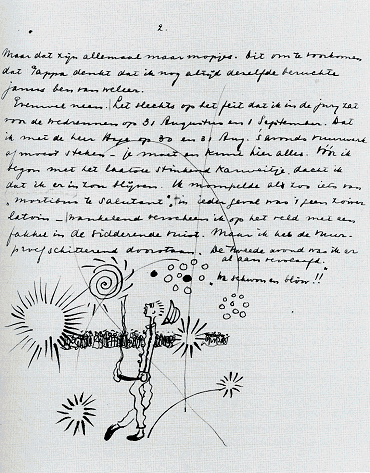 2.
Maar dat zijn allemaal maar mopjes. Dit om te voorkomen
dat Pappa denkt dat ik nog altijd dezelfde beruchte
janus ben van weleer.
Evenwel neen. Let slechts op het feit dat ik in de jury zat
voor de wedrennen op 31 Augustus en 1 September. Dat
ik met de heer op 30 en 31 Aug. 's avonds vuurwerk
af moest steken - je moet en kunt hier alles. Vóór ik
begon met het laatste stinkend karweitje, dacht ik
dat ik er in zou blijven. Ik mompelde als zoo iets van
"mortibus te salutant", in ieder geval was 't geen zuiver
latein - wankelend verscheen ik op het veld met een
fakkel in de sidderende vuist. Maar ik heb de vuur-
proef schitterend doorstaan. De tweede avond was ik er
al aan verslaafd.